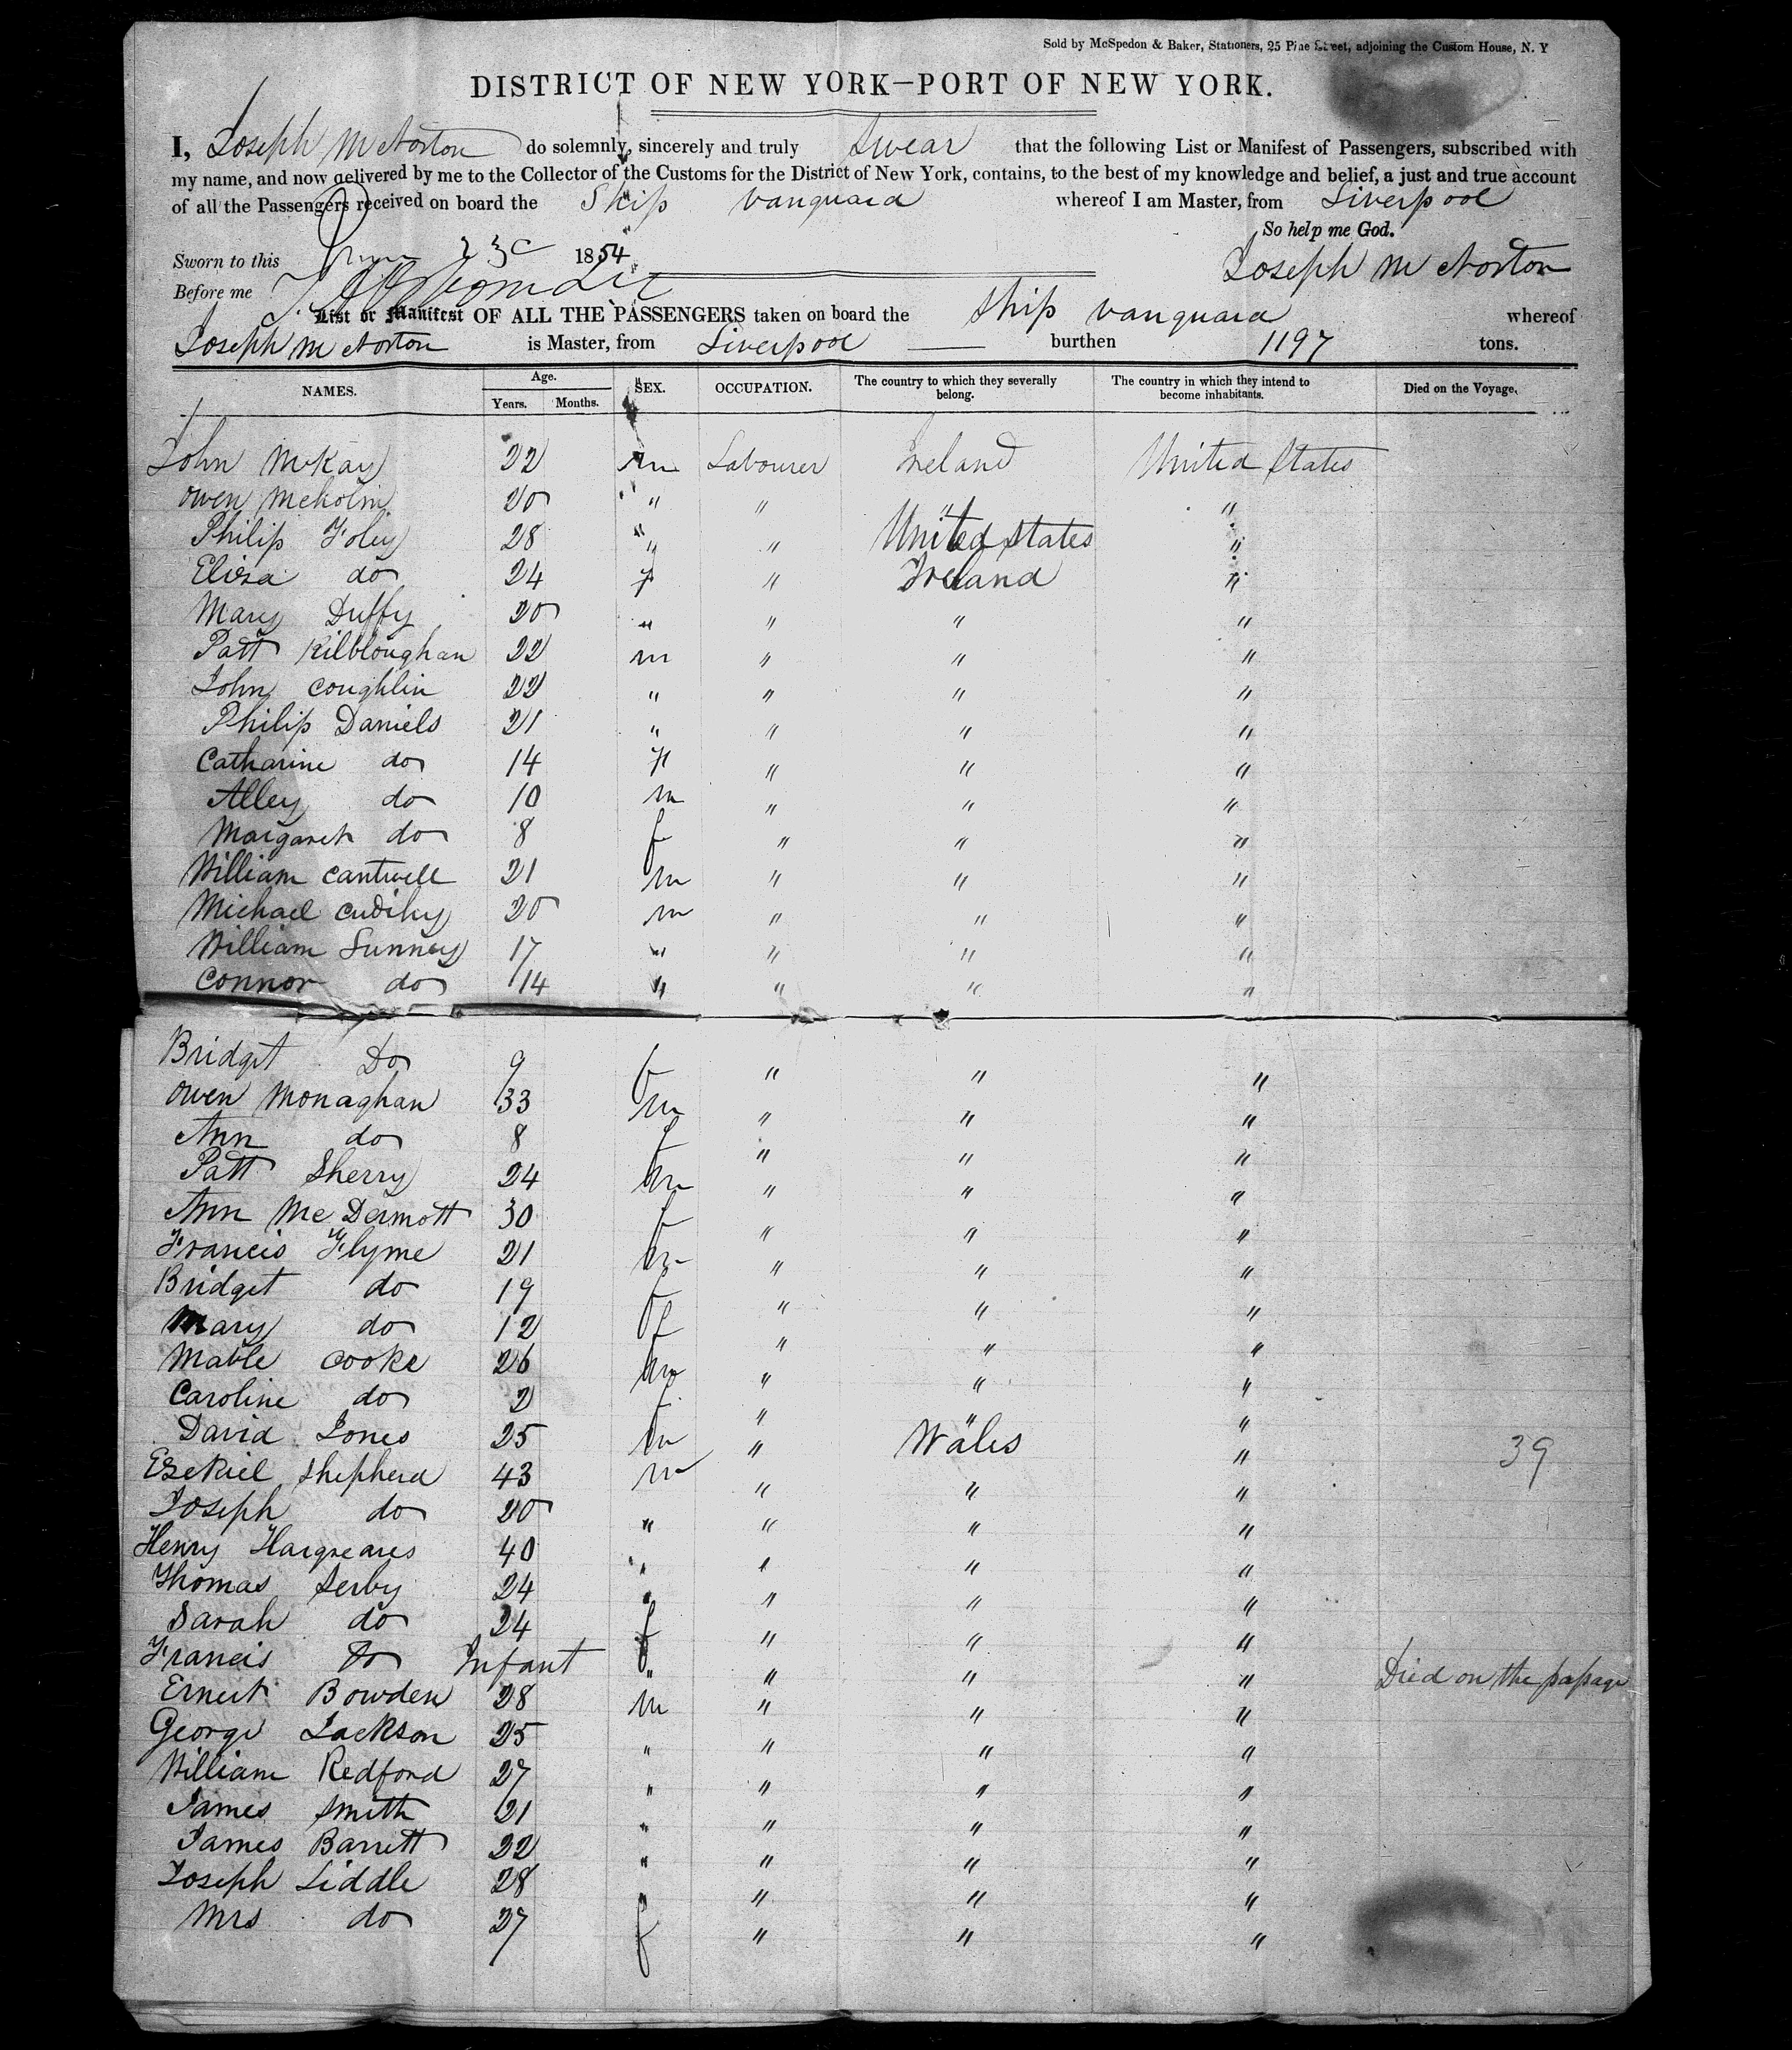 Sold by McSpedon & Baker, Stationers, 25 Pine Street, adjoining the Custom House, N. Y
DISTRICT OF NEW YORK—PORT OF NEW YORK.
I, Joseph M Norton do solemnly, sincerely and truly Swear that the following List or Manifest of Passengers, subscribed with
my name, and now delivered by me to the Collector of the Customs for the District of New York, contains, to the best of my knowledge and belief, a just and true account
of all the Passengers received on board the Ship Vanguard whereof I am Master, from Liverpool
So help me God.
Sworn to this 1854 Joseph M Norton
Before me
List or Manifest OF ALL THE PASSENGERS taken on board the Ship Vanguard whereof
Joseph M Norton is Master, from Liverpool — burthen 1197 tons.
NAMES. Age. Years. Months. SEX. OCCUPATION. The country to which they severally belong. The country in which they intend to become inhabitants. Died on the Voyage.
John McKay 22 m Labourer Ireland United States
Owen 20 " " " "
Philip Foley 28 " " United States "
Eliza do 24 f " Ireland "
Mary Duffy 20 " " " "
Patt Kilbloughan 22 m " " "
John Coughlin 22 " " " "
Philip Daniels 21 " " " "
Catharine do 14 f " " "
Alley do 10 m " " "
Margaret do 8 f " " "
William Cantwell 21 m " " "
Michael Cudihy 20 m " " "
William Sunney 17 " " " "
Connor do 14 " " " "
Bridget Do 9 f " " "
Owen Monaghan 33 m " " "
Ann do 8 f " " "
Patt Sherry 24 m " " "
Ann McDermott 30 f " " "
Francis Flyme 21 m " " "
Bridget do 19 f " " "
Mary do 12 f " " "
Mable Cooke 26 m " " "
Caroline do 2 f " " "
David Jones 25 m " Wales "
Ezekiel Shepherd 43 m " " " 39
Joseph do 20 " " " "
Henry Hargreaves 40 " " " "
Thomas Serby 24 " " " "
Sarah do 24 f " " "
Francis Do Infant " " " " Died on the passage
Ernest Bowden 28 m " " "
George Jackson 25 " " " "
William Redford 27 " " " "
James Smith 21 " " " "
James Barrett 22 " " " "
Joseph Liddle 28 " " " "
Mrs do 27 f " " "